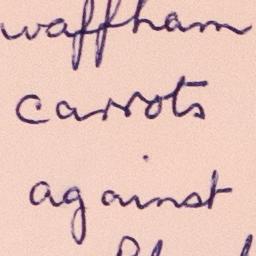 waffham
carrots
against